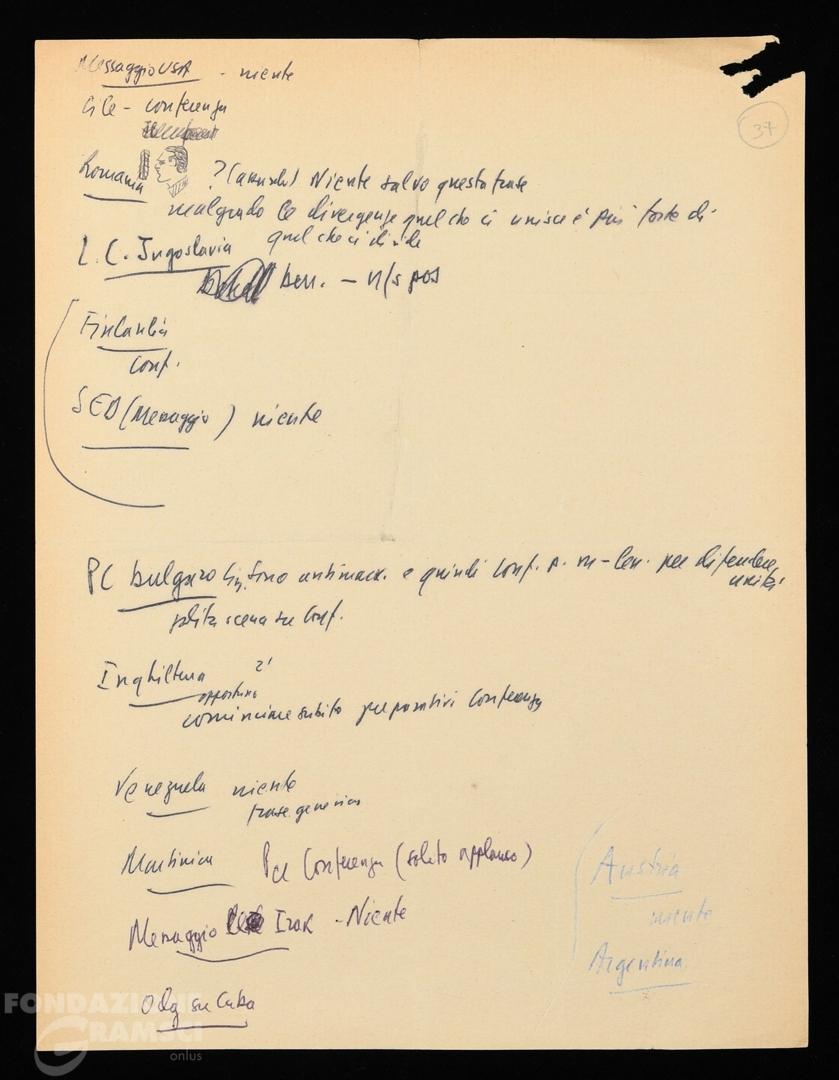 Messaggio USA - niente
37
Cile - conferenza
Romania ? (            ) Niente salvo questa frase
malgrado le divergenze quel che ci unisce è più forte di
quel che ci divide
L. C. Jugoslavia
ben. - n/s pos
Finlandia
conf.
SED (Messaggio) niente
PC bulgaro                          e quindi conf. p. m-len. per difendere
unità
solita scena su conf.
Inghilterra
opportuno
cominciare subito preparativi conferenza
Venezuela niente
frase generica
Martinica Per Conferenza (solito applauso)
Austria
niente
Messaggio Irak - Niente
Argentina
Odg su Cuba
FONDAZIONE
GRAMSCI
onlus